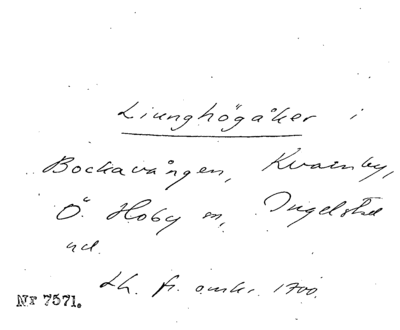 Liunghögåker i
Bockavången, Kvarnby,
Ö. Hoby sn, Ingelstad
hd.
Lh. fr. omkr. 1700.
Nr 7571.